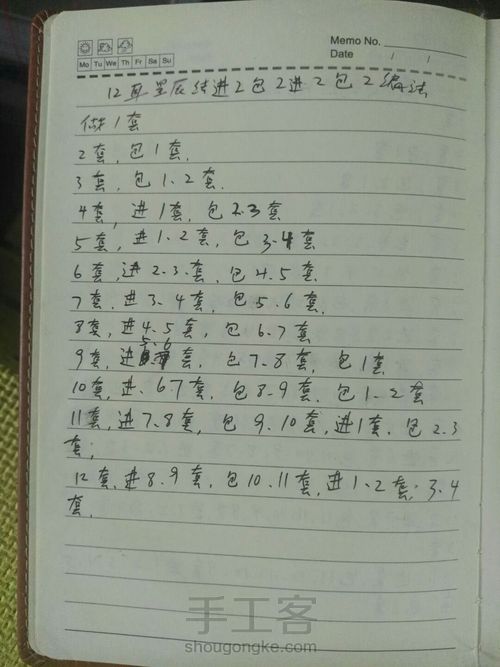 Memo No.
Mo Tu We Th Fr Sa Su
Date / /
12耳星辰结进2包2进2包2编法
做1套
2套,包1套.
3套,包1、2套.
4套,进1套,包2.3套
5套,进1、2套,包3.4套
6套,进2.3.套,包4.5套
7套.进3、4套,包5、6套.
8套,进4.5套,包6.7套
9套,进5.6套,包7、8套,包1套
10套,进.67套,包8、9套.包1、2套
11套,进7.8套,包9、10套,进1套.包2.3
套;
12套.进8、9套,包10.11套,进1、2套;3、4
套.
手工客
shougongke.com